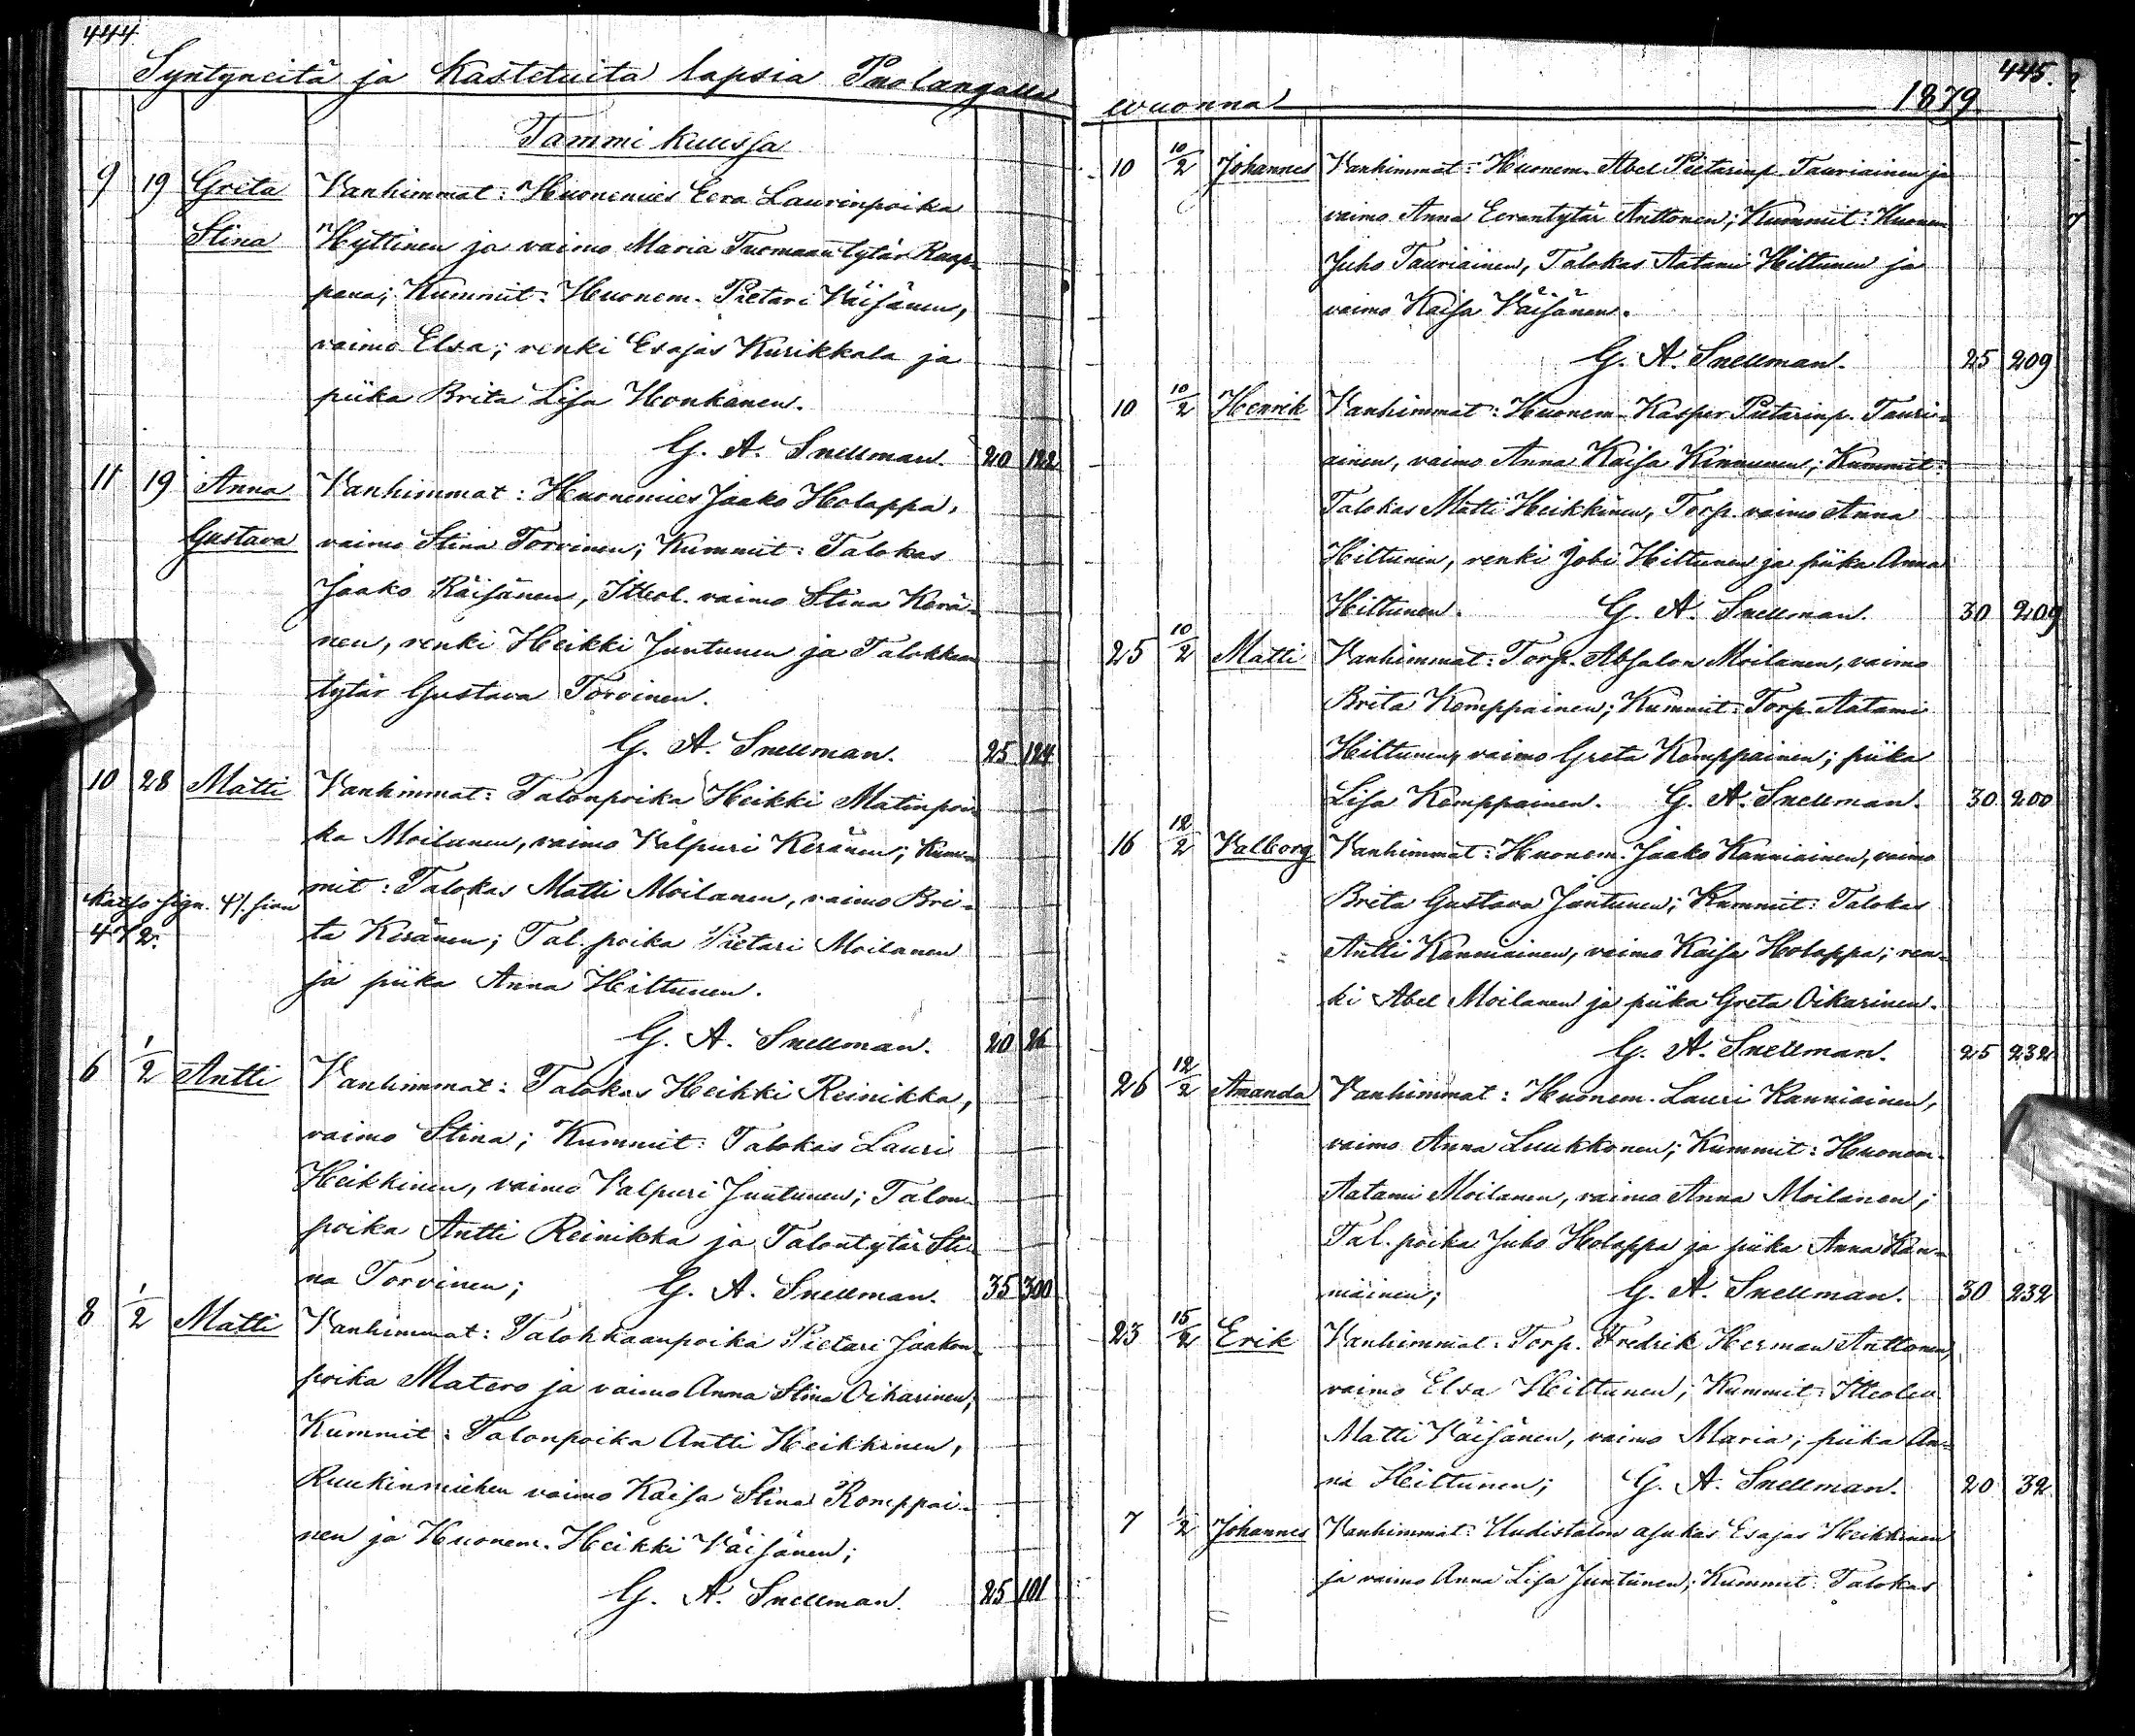 444.
Syntyneitä ja Kastetuita lapsia Puolangalla
Tammi kuussa
9 19 Greta Vanhimmat: Huonemies Eera Laurinpoika
Stina Hyttinen ja vaimo Maria Tuomaantytär Raap-
pana; Kummit: Huonem. Pietari Väisänen,
vaimo Elsa; renki Esajas Kurikkala ja
piika Brita Lisa Honkanen.
G. A. Snellman. 20 122
11 19 Anna Vanhimmat: Huonemies Jaako Holappa,
Gustava vaimo Stina Torvinen; Kummit: Talokas
Jaako Räisänen, Itteol. vaimo Stina Kerä-
nen, renki Heikki Juntunen ja Talokkaan
tytär Gustava Torvinen.
G. A. Snellman. 25 124
10 28 Matti Vanhimmat: Talonpoika Heikki Matinpoi-
ka Moilanen, vaimo Valpuri Keränen; Kum-
mit: Talokas Matti Moilanen, vaimo Bri-
Katso sivu
472.
ta Keränen; Tal. poika Pietari Moilanen
ja piika Anna Hiltunen.
G. A. Snellman. 20 26
6 1/2 Antti Vanhimmat: Talokas Heikki Reinikka,
vaimo Stina; Kummit: Talokas Lauri
Heikkinen, vaimo Valpuri Juntunen; Talon-
poika Antti Reinikka ja Talontytär Sti-
na Torvinen; G. A. Snellman. 35 300
8 1/2 Matti Vanhimmat: Talokkaanpoika Pietari Jaakon-
poika Matero ja vaimo Anna Stina Oikarinen;
Kummit: Talonpoika Antti Heikkinen,
Ruukinmiehen vaimo Kaisa Stina Komppai-
nen ja Huonem. Heikki Väisänen;
G. A. Snellman. 25 101
445.
wuonna 1879.
10 10/2 Johannes Vanhimmat: Huonem. Abel Pietarinp. Tauriainen ja
vaimo Anna Eerantytär Anttonen; Kummit: Huonem.
Juho Tauriainen, Talokas Aatami Hiltunen ja
vaimo Kaisa Väisänen.
G. A. Snellman. 25 209
10 10/2 Henrik Vanhimmat: Huonem. Kasper Pietarinp. Tauri-
ainen, vaimo Anna Kaisa Kinnunen; Kummit:
Talokas Matti Heikkinen, Torp. vaimo Anna
Hiltunen, renki Jobi Hiltunen ja piika Anna
Hiltunen. G. A. Snellman. 30 209
25 10/2 Matti Vanhimmat: Torp. Absalon Moilanen, vaimo
Brita Komppainen; Kummit: Torp. Aatami
Hiltunen, vaimo Greta Komppainen; piika
Lisa Komppainen. G. A. Snellman. 30 200
16 12/2 Valborg Vanhimmat: Huonem. Jaako Kanniainen, vaimo
Brita Gustava Juntunen; Kummit: Talokas
Antti Kanniainen, vaimo Kaisa Holappa; ren-
ki Abel Moilanen ja piika Greta Oikarinen.
G. A. Snellman. 25 232
26 12/2 Amanda Vanhimmat: Huonem. Lauri Kanniainen,
vaimo Anna Luukkonen; Kummit: Huonem.
Aatami Moilanen, vaimo Anna Moilanen;
Tal. poika Juho Holappa ja piika Anna Kan-
niainen; G. A. Snellman. 30 232
23 15/2 Erik Vanhimmat: Torp. Fredrik Herman Anttonen,
vaimo Elsa Hiltunen; Kummit: Itteolev.
Matti Väisänen, vaimo Maria; piika An-
na Hiltunen; G. A. Snellman. 20 32
7 1/2 Johannes Vanhimmat: Uudistalon asukas Esajas Heikkinen
ja vaimo Anna Lisa Juntunen; Kummit: Talokas